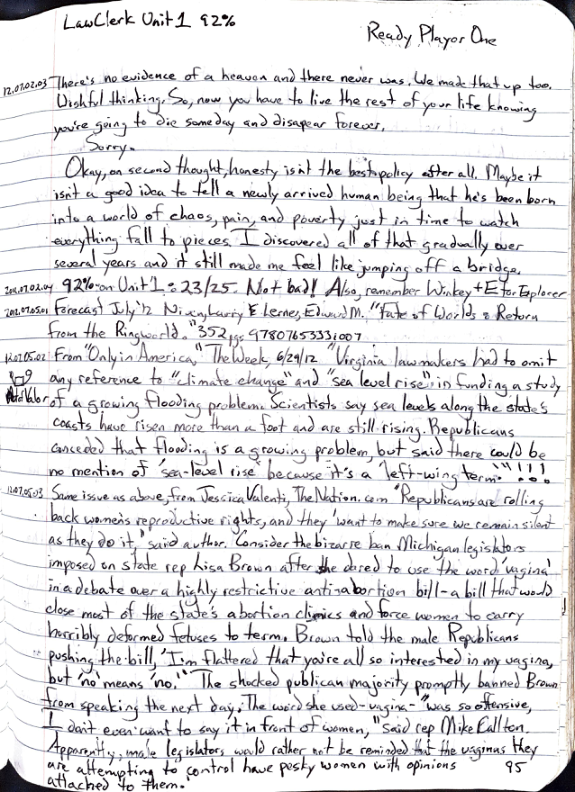 LawClerk Unit 1 92%
Ready Player One
12.07.02.03 There's no evidence of a heaven and there never was. We made that up too.
Wishful thinking. So, now you have to live the rest of your life knowing
you're going to die someday and disapear forever.
Sorry.
Okay, on second thought, honesty isn't the best policy after all. Maybe it
isn't a good idea to tell a newly arrived human being that he's been born
into a world of chaos, pain, and poverty just in time to watch
everything fall to pieces. I discovered all of that gradually over
several years and it still made me feel like jumping off a bridge.
92% on Unit 1 = 23/25. Not bad! Also, remember Winkey + E for Explorer
Forecast July '12 Niven, Larry & Lerner, Edward M. "Fate of Worlds: Return
from the Ringworld." 352 pgs 9780765331007
12.07.05.02 From "Only in America," The Week, 6/29/12 "Virginia lawmakers had to omit
any reference to "climate change" and "sea level rise" in funding a study
of a growing flooding problem. Scientists say sea levels along the state's
coasts have risen more than a foot and are still rising. Republicans
conceded that flooding is a growing problem, but said there could be
no mention of 'sea-level rise' because it's a 'left-wing term.'" !!!
12.07.05.03 Same issue as above, from Jessica Valenti, TheNation.com "Republicans are rolling
back women's reproductive rights, and they 'want to make sure we remain silent
as they do it,' said author. Consider the bizarre ban Michigan legislators
imposed on state rep Lisa Brown after she dared to use the word 'vagina'
in a debate over a highly restrictive antiabortion bill - a bill that would
close most of the state's abortion clinics and force women to carry
horribly deformed fetuses to term. Brown told the male Republicans
pushing the bill, 'I'm flattered that you're all so interested in my vagina,
but 'no' means 'no.'" The shocked publican majority promptly banned Brown
from speaking the next day. The word she used - vagina - "was so offensive,
I don't even want to say it in front of women," said rep Mike Callton.
Apparently, male legislators would rather not be reminded that the vaginas they
are attempting to control have pesky women with opinions 95
attached to them."